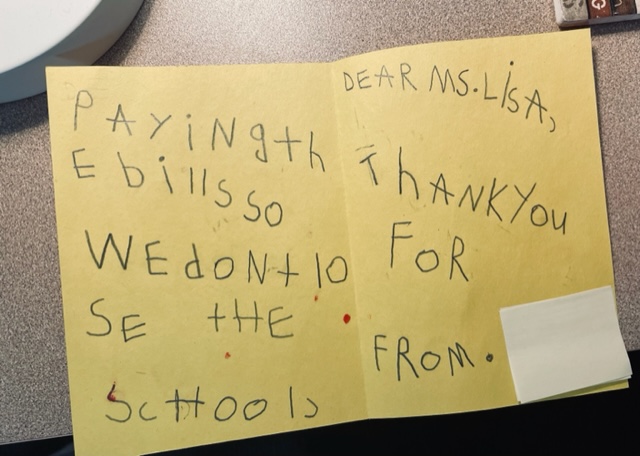 PAYiNgth
E bills so
WE doNt lo
SE tHE
ScHools
DEAR MS. LiSA,
ThANK YOU
FOR
FROM.